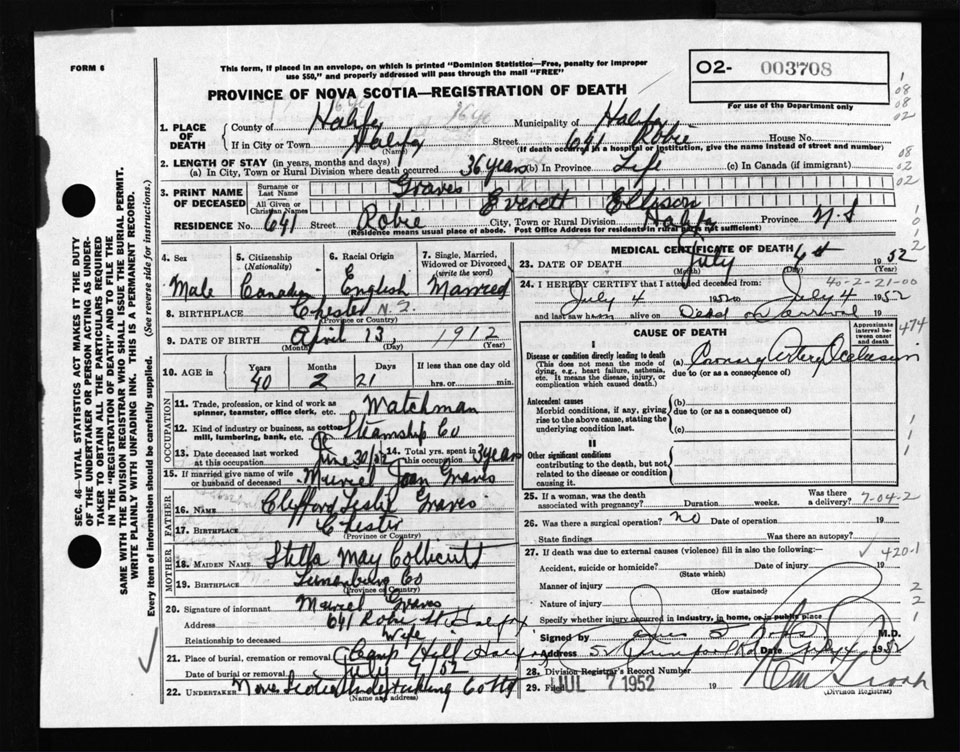 FORM 6
This form, if placed in an envelope, on which is printed "Dominion Statistics—Free, penalty for improper
use $50," and properly addressed will pass through the mail "FREE"
O2- 003708
For use of the Department only
PROVINCE OF NOVA SCOTIA—REGISTRATION OF DEATH
1. PLACE OF DEATH { County of Halifax Municipality of Halifax
If in City or Town Halifax Street 641 Robie House No.
(Name) (If death occurred in a hospital or institution, give the name instead of street and number)
2. LENGTH OF STAY (in years, months and days)
(a) In City, Town or Rural Division where death occurred 36 years (b) In Province Life (c) In Canada (if immigrant)
3. PRINT NAME OF DECEASED { Surname or Last Name Graves
All Given or Christian Names Everett Ellison
RESIDENCE No. 641 Street Robie City, Town or Rural Division Halifax Province N.S
(Residence means usual place of abode. Post Office Address for residents in rural parts not sufficient)
4. Sex Male
5. Citizenship (Nationality) Canadian
6. Racial Origin English
7. Single, Married, Widowed or Divorced (write the word) Married
8. BIRTHPLACE Chester N.S.
(Province or Country)
9. DATE OF BIRTH April 13, 1912
(Month) (Day) (Year)
10. AGE in { Years 40 Months 2 Days 21 If less than one day old hrs. or min.
OCCUPATION
11. Trade, profession, or kind of work as spinner, teamster, office clerk, etc. Watchman
12. Kind of industry or business, as cotton mill, lumbering, bank, etc. Steamship Co
13. Date deceased last worked at this occupation June 30/52 14. Total yrs. spent in this occupation 3 years
15. If married give name of wife or husband of deceased Muriel Joan Graves
FATHER
16. NAME Clifford Leslie Graves
17. BIRTHPLACE Chester
(Province or Country)
MOTHER
18. MAIDEN NAME Stella May Collicutt
19. BIRTHPLACE Lunenburg Co
(Province or Country)
20. Signature of informant Muriel Graves
Address 641 Robie St Halifax
Relationship to deceased Wife
21. Place of burial, cremation or removal Camp Hill Halifax
Date of burial or removal July 7/52
22. UNDERTAKER Nova Scotia Undertaking
(Name and address)
MEDICAL CERTIFICATE OF DEATH
23. DATE OF DEATH July 1952
(Month) (Day) (Year)
40-2-21-00
24. I HEREBY CERTIFY that I attended deceased from:
July 4 1952 to July 4 1952
and last saw h alive on Dead on arrival 19
CAUSE OF DEATH
Approximate interval between onset and death
I
Disease or condition directly leading to death
(This does not mean the mode of dying, e.g., heart failure, asthenia, etc. It means the disease, injury, or complication which caused death.)
(a) Coronary Artery Occlusion
due to (or as a consequence of)
Antecedent causes
Morbid conditions, if any, giving rise to the above cause, stating the underlying condition last.
(b)
due to (or as a consequence of)
(c)
II
Other significant conditions
contributing to the death, but not related to the disease or condition causing it.
25. If a woman, was the death associated with pregnancy? Duration weeks. Was there a delivery?
7-04-2
26. Was there a surgical operation? no Date of operation 19
State findings Was there an autopsy?
27. If death was due to external causes (violence) fill in also the following:—
420-1
Accident, suicide or homicide? Date of injury 19
(State which)
Manner of injury
(How sustained)
Nature of injury
Specify whether injury occurred in industry, in home, or in public place
Signed by M.D.
Address Date July 4 1952
28. Division Registrar's Record Number
29. Filed JUL 7 1952 19
(Division Registrar)
SEC. 46—VITAL STATISTICS ACT MAKES IT THE DUTY
OF THE UNDERTAKER OR PERSON ACTING AS UNDER-
TAKER TO OBTAIN ALL THE PARTICULARS REQUIRED
IN THE "REGISTRATION OF DEATH" AND TO FILE THE
SAME WITH THE DIVISION REGISTRAR WHO SHALL ISSUE THE BURIAL PERMIT.
WRITE PLAINLY WITH UNFADING INK. THIS IS A PERMANENT RECORD.
Every item of information should be carefully supplied. (See reverse side for instructions.)